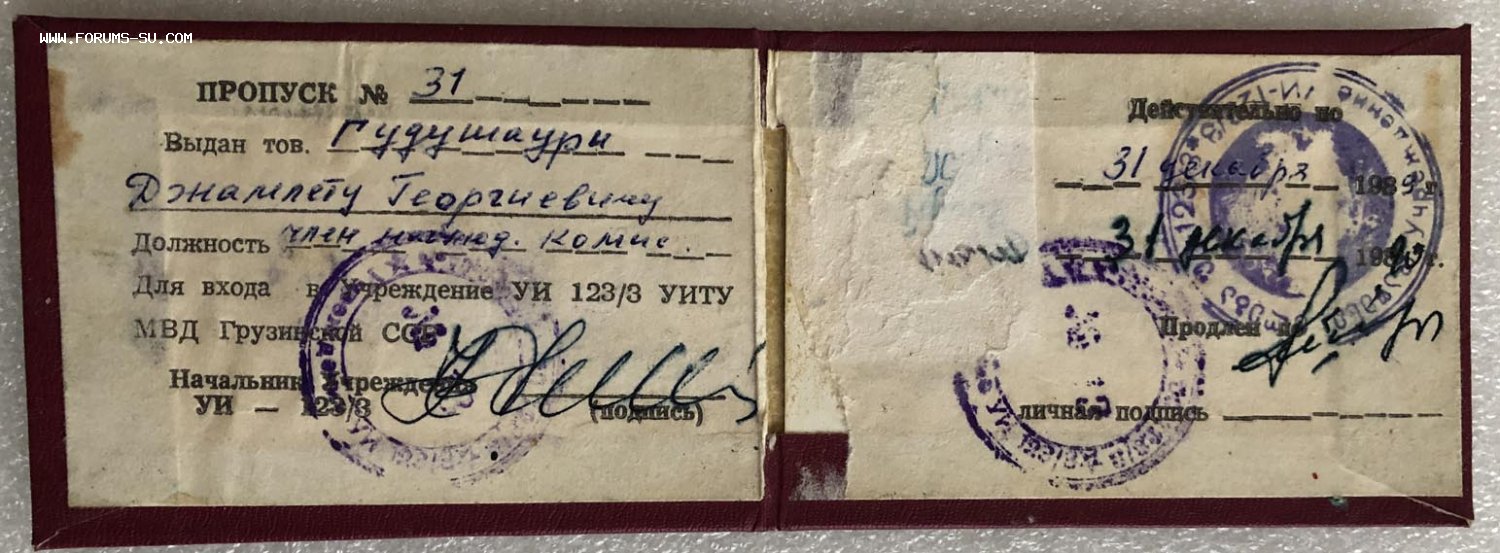 WWW.FORUMS-SU.COM
ПРОПУСК № 31
Выдан тов. Гудушаури
Джамлету Георгиевичу
Должность член наблюд. комис.
Для входа в Учреждение УИ 123/3 УИТУ
МВД Грузинской ССР
Начальник Учреждения
УИ — 123/3 (подпись)
Действительно по
31 декабря 1989 г.
31 декабря 19 г.
Продлен по
личная подпись